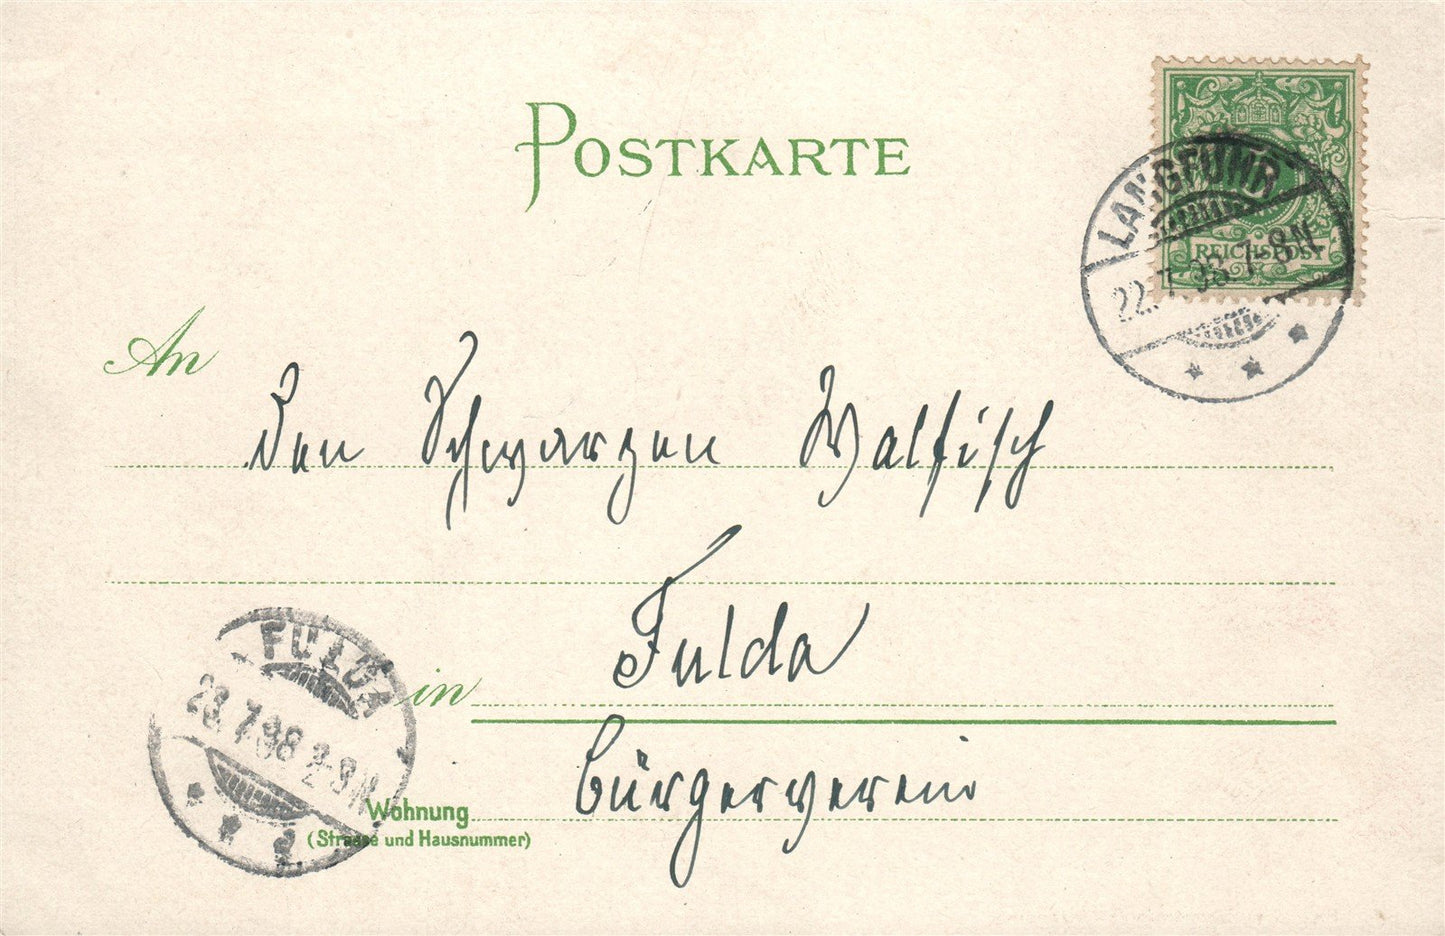 POSTKARTE
LANGFUHR
22.7.98.7-8N
REICHSPOST
An
Den Schwarzen Walfisch
in Fulda
FULDA
23.7.98 2-3N
Bürgerverein
Wohnung
(Strasse und Hausnummer)